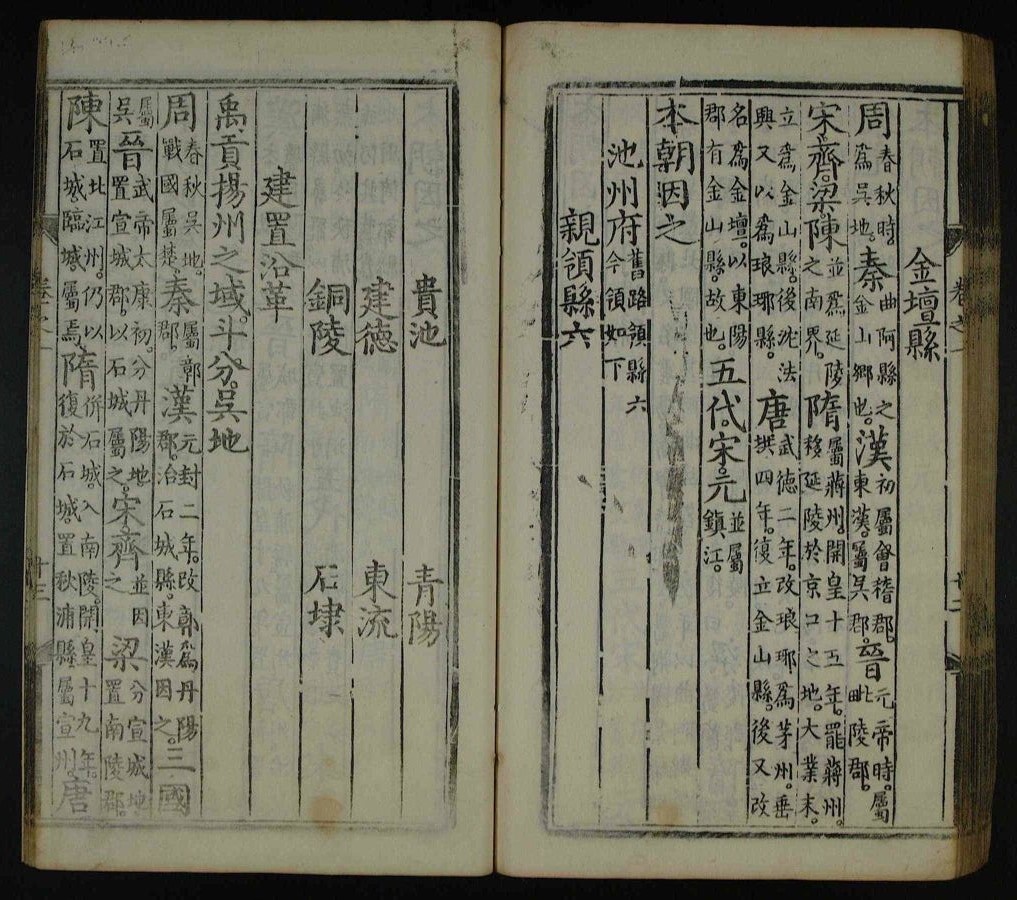 金壇縣
周春秋時。為吳地。秦曲阿縣之金山鄉也。漢初屬會稽郡。東漢。屬吳郡。晉元帝時。屬毗陵郡。
宋齊。梁。陳並為延陵之南界。隋屬蔣州。開皇十五年。罷蔣州。移延陵於京口之地。大業末。
立為金山縣。後沈法興又以為琅琊縣。唐武德二年。改琅琊為茅州。垂拱四年。復立金山縣。後又改
名為金壇。以東陽郡有金山縣。故也。五代。宋。元並屬鎮江。
本朝因之
池州府舊路領縣六今領如下
親領縣六
貴池 青陽
建德 東流
銅陵 石埭
建置沿革
禹貢揚州之域。斗分。吳地
周春秋吳地。戰國屬楚。秦屬鄣郡。漢元封二年。改鄣為丹陽郡。治石城縣。東漢因之。三國
屬吳晉武帝太康初。分丹陽地置宣城郡。以石城屬之。宋齊並因之梁分宣城地置南陵郡。
陳置北江州。仍以石城。臨城。屬焉。隋併石城。入南陵。開皇十九年。復於石城。置秋浦縣屬宣州。唐